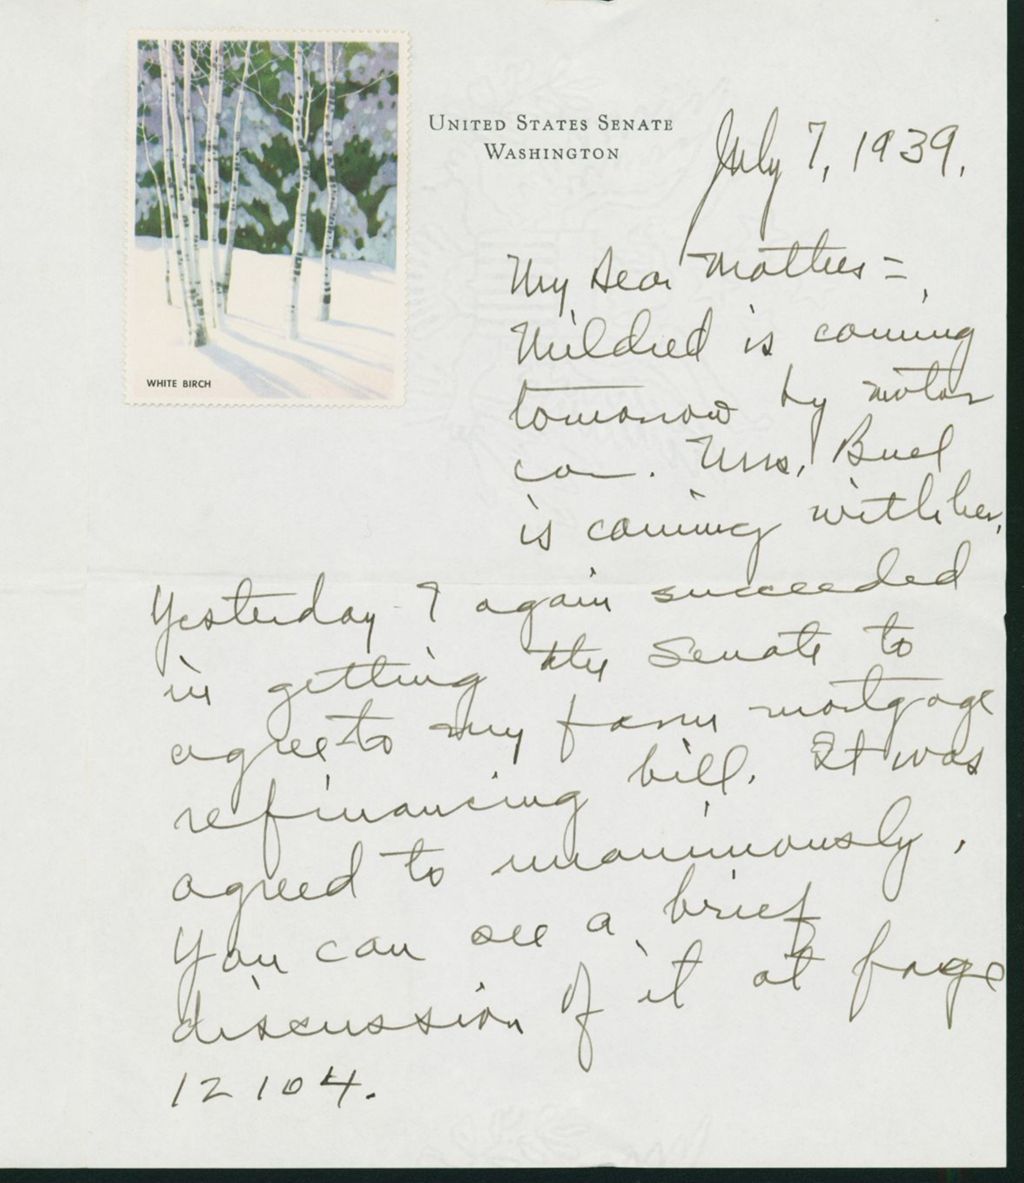 UNITED STATES SENATE
WASHINGTON
July 7, 1939.
WHITE BIRCH
My dear Mother =
Mildred is coming
tomorrow by motor
car. Mrs. Buel
is coming with her.
Yesterday I again succeeded
in getting the Senate to
agree to my farm mortgage
refinancing bill. It was
agreed to unanimously.
You can see a brief
discussion of it at page
12104.